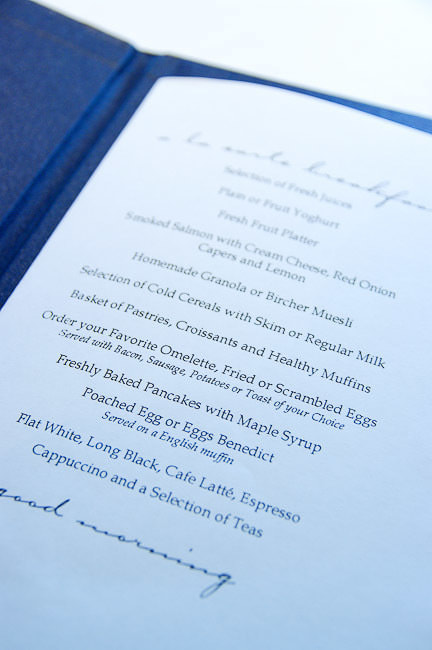 a la carte breakfa
Selection of Fresh Juices
Plain or Fruit Yoghurt
Fresh Fruit Platter
Smoked Salmon with Cream Cheese, Red Onion
Capers and Lemon
Homemade Granola or Bircher Muesli
Selection of Cold Cereals with Skim or Regular Milk
Basket of Pastries, Croissants and Healthy Muffins
Order your Favorite Omelette, Fried or Scrambled Eggs
Served with Bacon, Sausage, Potatoes or Toast of your Choice
Freshly Baked Pancakes with Maple Syrup
Poached Egg or Eggs Benedict
Served on a English muffin
Flat White, Long Black, Cafe Latté, Espresso
Cappuccino and a Selection of Teas
good morning